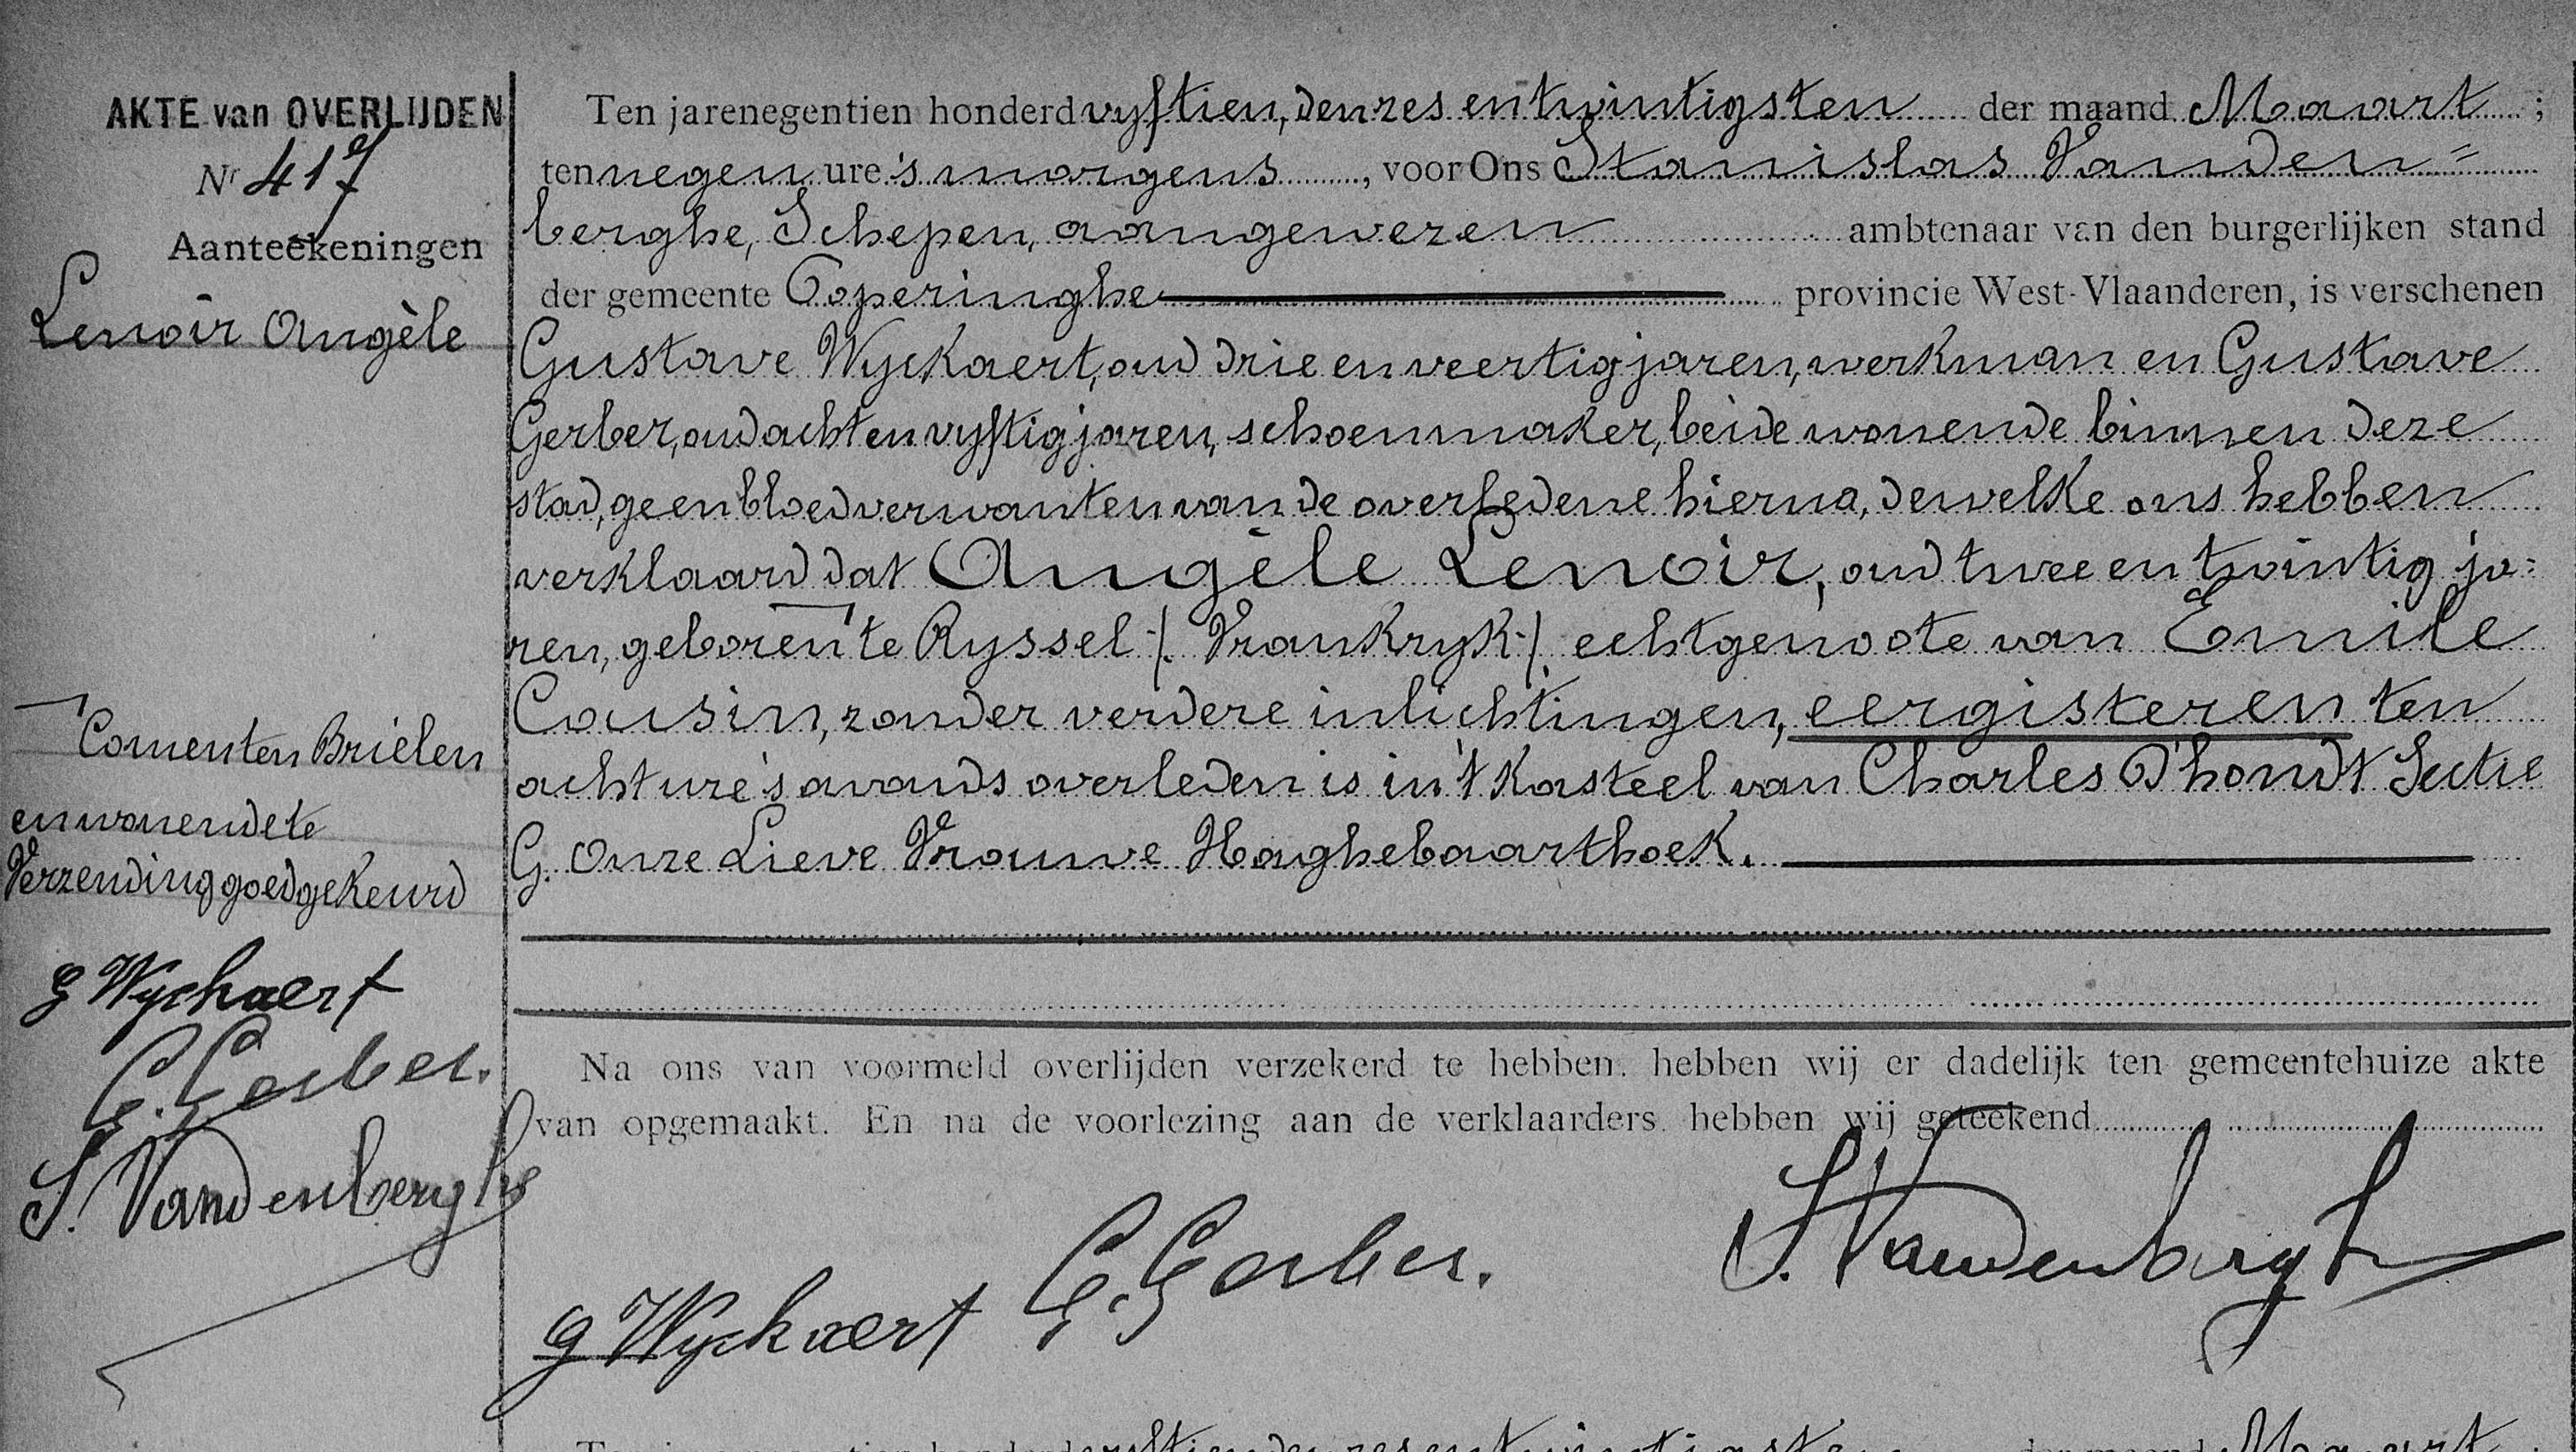 AKTE van OVERLIJDEN
Nr 417
Aanteekeningen
Lenoir Angèle
Ten jare negentien honderd vyftien, den zes en twintigsten der maand Maart ;
ten negen ure 's morgens , voor Ons Stanislas Vanden=
berghe, Schepen, aangewezen ambtenaar van den burgerlijken stand
der gemeente Poperinghe provincie West-Vlaanderen, is verschenen
Gustave Wyckaert, oud drie en veertig jaren, werkman en Gustave
Gerber, oud acht en vyftig jaren, schoenmaker, beide wonende binnen deze
stad, geen bloedverwanten van de overledene hierna, dewelke ons hebben
verklaard dat Angèle Lenoir, oud twee en twintig ja=
ren, geboren te Ryssel /. Vrankryk /. echtgenoote van Emile
Cousin, zonder verdere inlichtingen, eergisteren ten
acht ure 's avonds overleden is in 't Kasteel van Charles D'hondt Sectie
G. Onze Lieve Vrouwe Haghebaarthoek.
Comenten Brielen
en wonende te
Verzending goedgekeurd
G Wyckaert
G. Gerber.
S. Vandenberghe
Na ons van voormeld overlijden verzekerd te hebben. hebben wij er dadelijk ten gemeentehuize akte
van opgemaakt. En na de voorlezing aan de verklaarders hebben wij geteekend
G Wyckaert G. Gerber. S. Vandenbergh
vyftien den zes en twintigsten der maand Maart